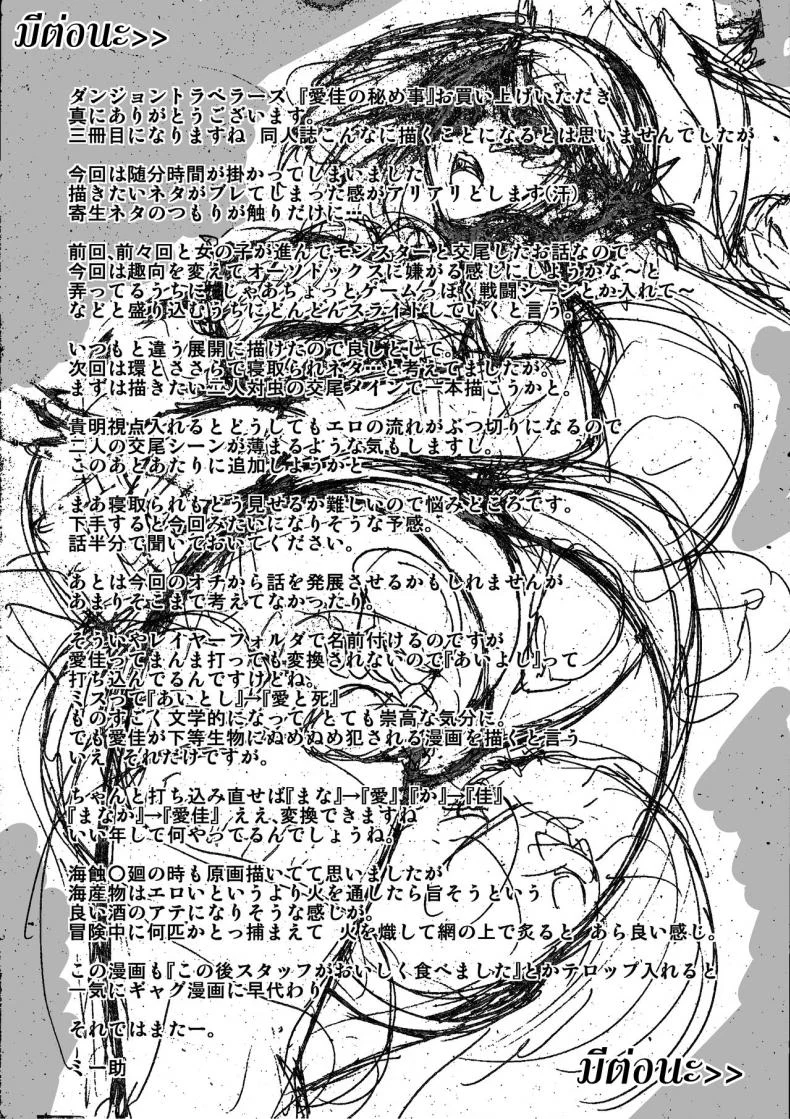 มีต่อนะ>>
ダンジョントラベラーズ『愛佳の秘め事』お買い上げいただき
真にありがとうございます。
三冊目になりますね 同人誌こんなに描くことになるとは思いませんでしたが
今回は随分時間が掛かってしまいました
描きたいネタがブレてしまった感がアリアリとします(汗)
寄生ネタのつもりが触りだけに…
前回、前々回と女の子が進んでモンスターと交尾したお話なので
今回は趣向を変えてオーソドックスに嫌がる感じにしようかな～と
弄ってるうちに、じゃあちょっとゲームっぽく戦闘シーンとか入れて～
などと盛り込むうちにどんどんスライドしていくと言う。
いつもと違う展開に描けたので良しとして。
次回は環とささらで寝取られネタ…と考えてましたが。
まずは描きたい二人対虫の交尾メインで一本描こうかと。
貴明視点入れるとどうしてもエロの流れがぶつ切りになるので
二人の交尾シーンが薄まるような気もしますし。
このあとあたりに追加しようかと
まあ寝取られもどう見せるか難しいので悩みどころです。
下手すると今回みたいになりそうな予感。
話半分で聞いておいてください。
あとは今回のオチから話を発展させるかもしれませんが
あまりそこまで考えてなかったり。
そういやレイヤーフォルダで名前付けるのですが
愛佳ってまんま打っても変換されないので『あいよし』って
打ち込んでるんですけどね。
ミスって『あいとし』→『愛と死』
ものすごく文学的になって とても崇高な気分に。
でも愛佳が下等生物にぬめぬめ犯される漫画を描くと言う
いえ それだけですが。
ちゃんと打ち込み直せば『まな』→『愛』、『か』→『佳』
『まなか』→『愛佳』 ええ、変換できますね
いい年して何やってるんでしょうね。
海蝕〇廻の時も原画描いてて思いましたが
海産物はエロいというより火を通したら旨そうという
良い酒のアテになりそうな感じが。
冒険中に何匹かとっ捕まえて 火を熾して網の上で炙ると あら良い感じ。
この漫画も『この後スタッフがおいしく食べました』とかテロップ入れると
一気にギャグ漫画に早代わり
それではまたー。
ミ一助
มีต่อนะ>>